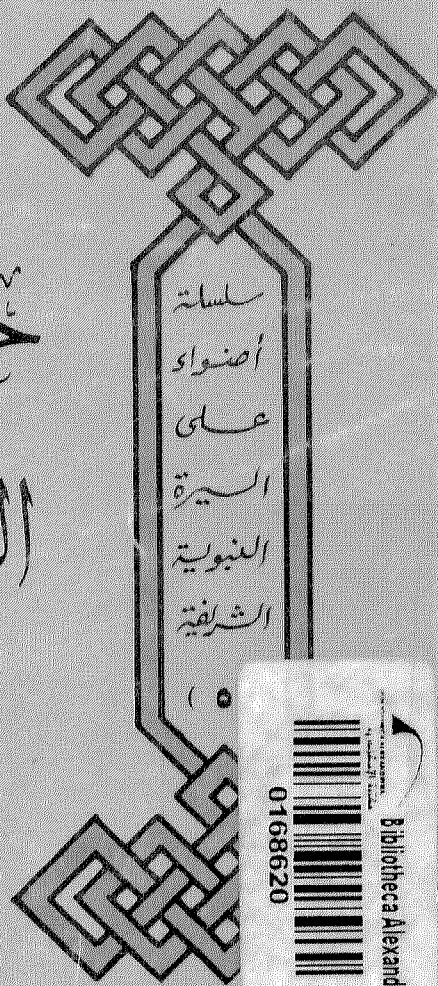 سلسلة
أضواء
على
السيرة
النبوية
الشريفة
( ٥
Bibliotheca Alexand
0168620